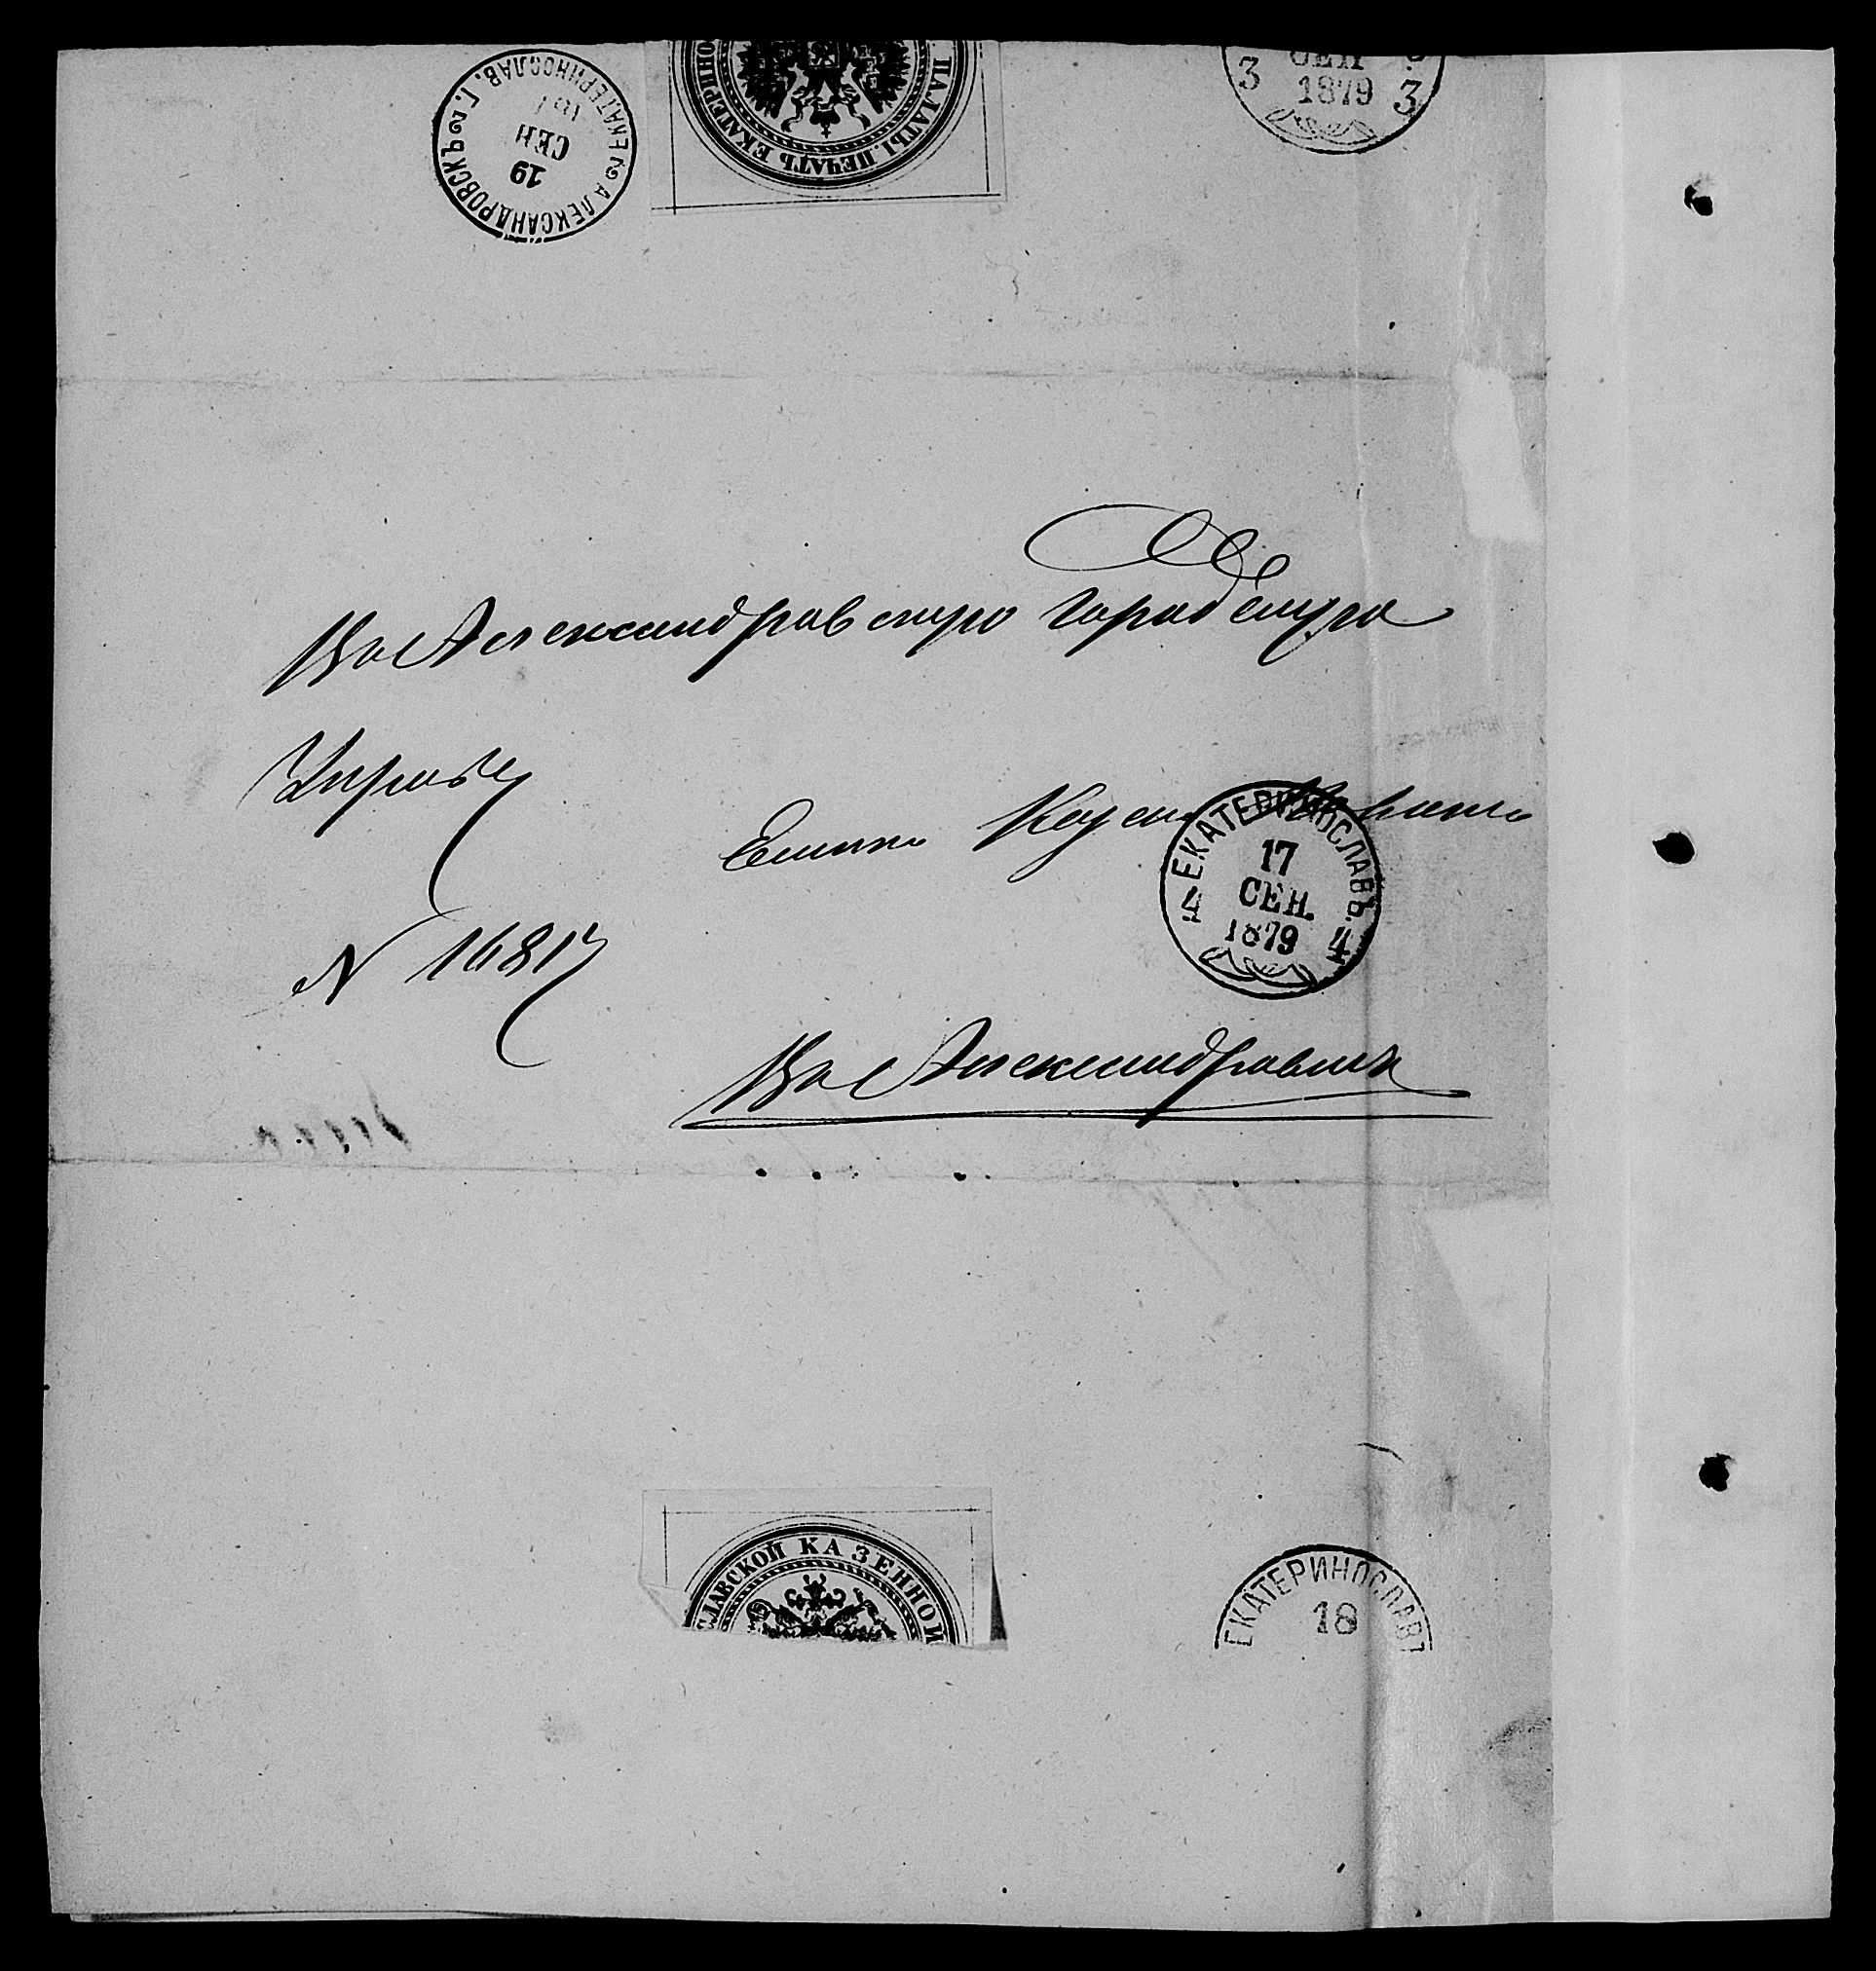 АЛЕКСАНДРОВСКЪ ЕКАТЕРИНОСЛАВ. Г.
19
СЕН
ПАЛАТЫ. ПЕЧАТЬ ЕКАТЕРИНО
СЕН
3 1879 3
Въ Александровскую городскую
Управу
ЕКАТЕРИНОСЛАВЪ.
17
СЕН.
4 1879 4
N 16817
Въ Александровскъ
СЛАВСКОЙ КАЗЕННОЙ
ЕКАТЕРИНОСЛАВЪ
18